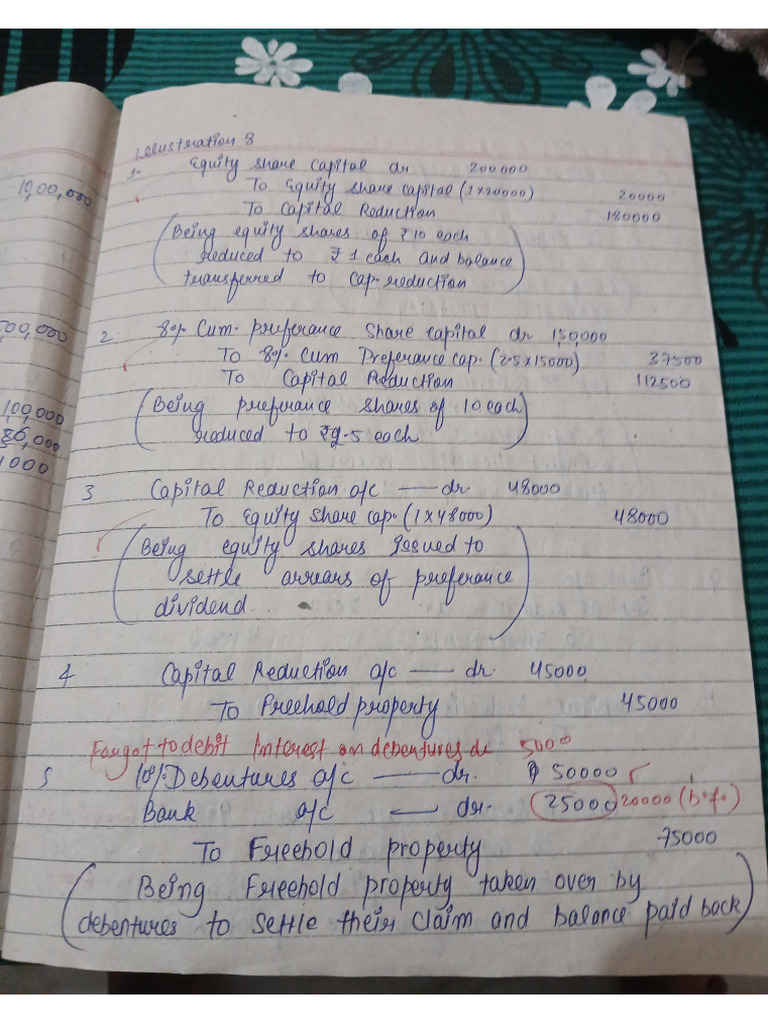 10,00,000
500,000
1,00,000
86,000
1000
Illustration 8
1. Equity share capital dr 200000
To Equity share capital (1x20000) 20000
To Capital Reduction 180000
(Being equity shares of ₹10 each
reduced to ₹1 each and balance
transferred to cap. reduction)
2. 8% Cum. preferance share capital dr 150,000
To 8% Cum Preferance cap. (2.5x15000) 37500
To Capital Reduction 112500
(Being preferance shares of 10 each
reduced to ₹2.5 each)
3 Capital Reduction a/c — dr. 48000
To Equity share cap. (1x48000) 48000
(Being equity shares issued to
settle arrears of preferance
dividend)
4 Capital Reduction a/c — dr. 45000
To Freehold property 45000
Forgot to debit Interest on debentures dr 5000
5 10% Debentures a/c — dr. 50000
Bank a/c — dr. 25000 20000 (b.f.)
To Freehold property 75000
(Being Freehold property taken over by
debentures to settle their claim and balance paid back)